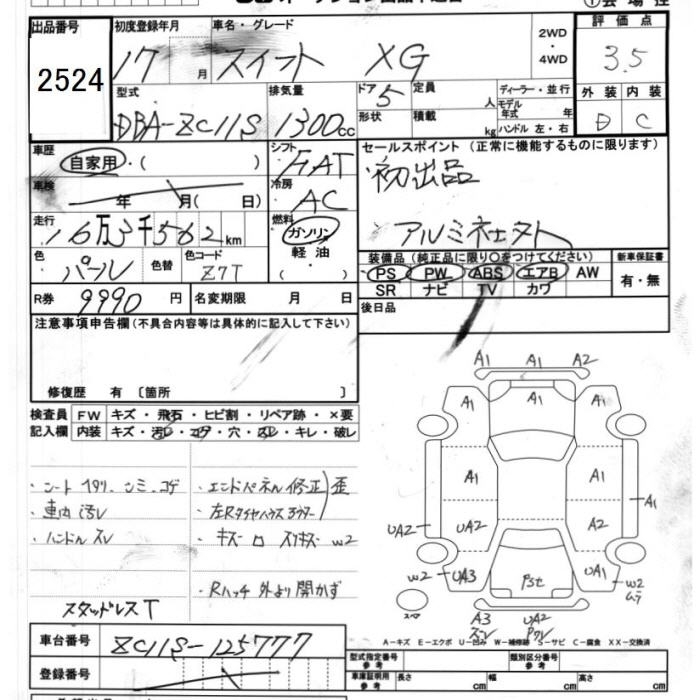 出品番号
2524
初度登録年月
17 月
車名・グレード
スイフト XG
2WD
・
4WD
評価点
3.5
型式
DBA-ZC11S
排気量
1300cc
ドア 5
定員 人
形状
積載 kg
ディーラー・並行
モデル年式 年
ハンドル 左・右
外装 内装
D C
車歴
自家用・( )
シフト
FAT
車検
年 月( 日)
冷房
AC
セールスポイント(正常に機能するものに限ります)
初出品
アルミネェタト
走行
16万3千562km
燃料
ガソリン
軽油
・( )
色
パール
色替
色コード
Z7T
装備品(純正品に限り〇をつけてください)
PS PW ABS エアB AW
SR ナビ TV カワ
新車保証書
有・無
R券 9990 円
名変期限 月 日
後日品
注意事項申告欄(不具合内容等は具体的に記入して下さい)
修復歴 有〔箇所 〕
検査員記入欄
FW キズ・飛石・ヒビ割・リペア跡・×要
内装 キズ・汚レ・コゲ・穴・スレ・キレ・破レ
・シート スタリ、シミ、コゲ
・車内 汚レ
・ハンドル スレ
スタッドレス T
・エンドパネル 修正 歪
・左Rタイヤハウス
・キズ
W2
・Rハッチ 外より開かず
A1 A1 A2
A1 A1 A1
A1 A1 A1
UA2 UA2 A2
W2 UA3 Pst UA1 W2
スペア
A3 UA2
スレ
A-キズ E-エクボ U-凹み W-補修跡 S-サビ C-腐食 XX-交換済
車台番号
ZC11S-125777
登録番号
型式指定番号 参考
類別区分番号 参考
車庫証明用 参考
長さ cm
幅 cm
高さ cm